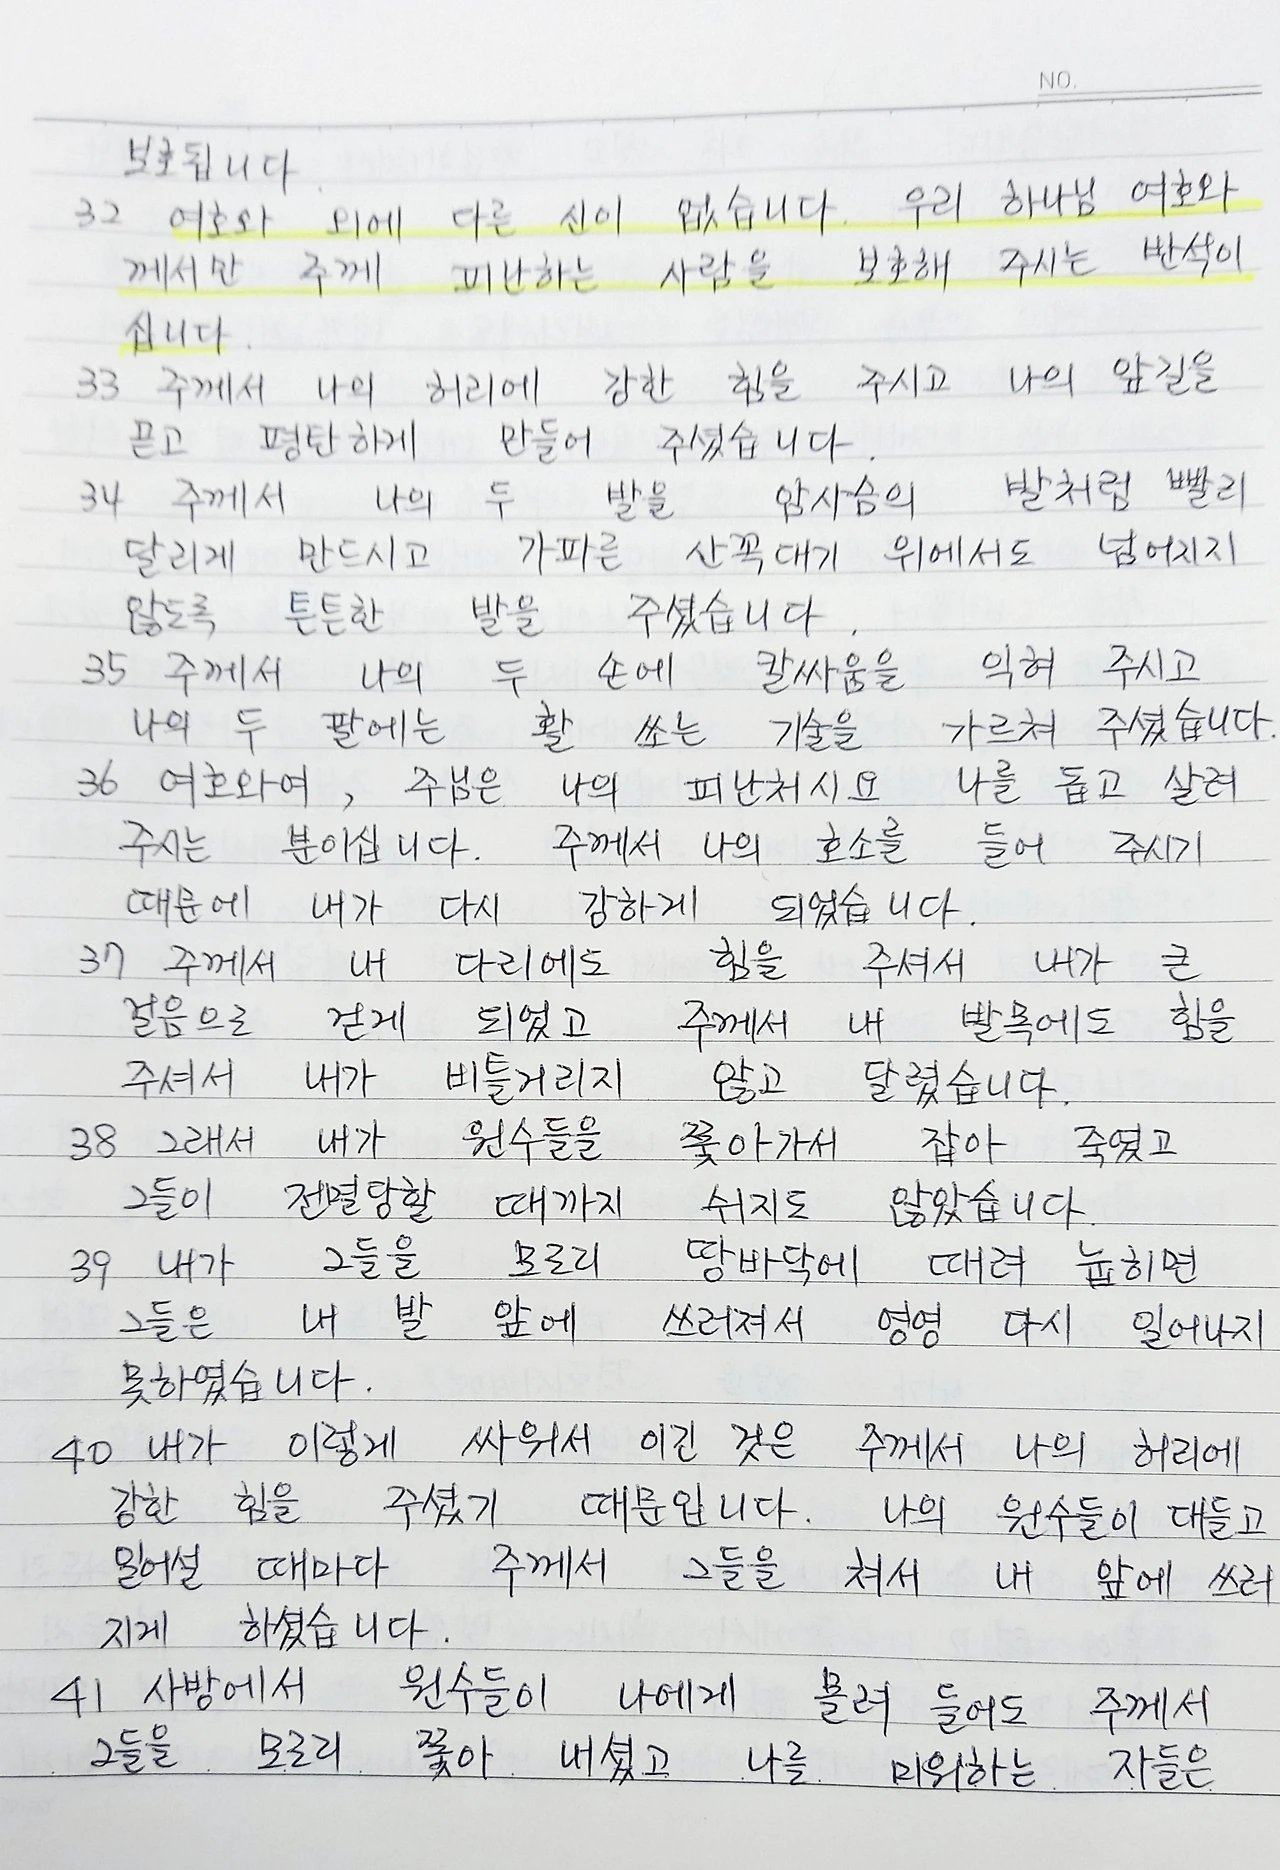 NO.
보호됩니다.
32 여호와 외에 다른 신이 없습니다. 우리 하나님 여호와
께서만 주께 피난하는 사람을 보호해 주시는 반석이
십니다.
33 주께서 나의 허리에 강한 힘을 주시고 나의 앞길을
곧고 평탄하게 만들어 주셨습니다.
34 주께서 나의 두 발을 암사슴의 발처럼 빨리
달리게 만드시고 가파른 산꼭대기 위에서도 넘어지지
않도록 튼튼한 발을 주셨습니다.
35 주께서 나의 두 손에 칼싸움을 익혀 주시고
나의 두 팔에는 활 쏘는 기술을 가르쳐 주셨습니다.
36 여호와여, 주님은 나의 피난처시요 나를 돕고 살려
주시는 분이십니다. 주께서 나의 호소를 들어 주시기
때문에 내가 다시 강하게 되었습니다.
37 주께서 내 다리에도 힘을 주셔서 내가 큰
걸음으로 걷게 되었고 주께서 내 발목에도 힘을
주셔서 내가 비틀거리지 않고 달렸습니다.
38 그래서 내가 원수들을 쫓아가서 잡아 죽였고
그들이 전멸당할 때까지 쉬지도 않았습니다.
39 내가 그들을 모조리 땅바닥에 때려 눕히면
그들은 내 발 앞에 쓰러져서 영영 다시 일어나지
못하였습니다.
40 내가 이렇게 싸워서 이긴 것은 주께서 나의 허리에
강한 힘을 주셨기 때문입니다. 나의 원수들이 대들고
일어설 때마다 주께서 그들을 쳐서 내 앞에 쓰러
지게 하셨습니다.
41 사방에서 원수들이 나에게 몰려 들어도 주께서
그들을 모조리 쫓아 내셨고 나를 미워하는 자들은